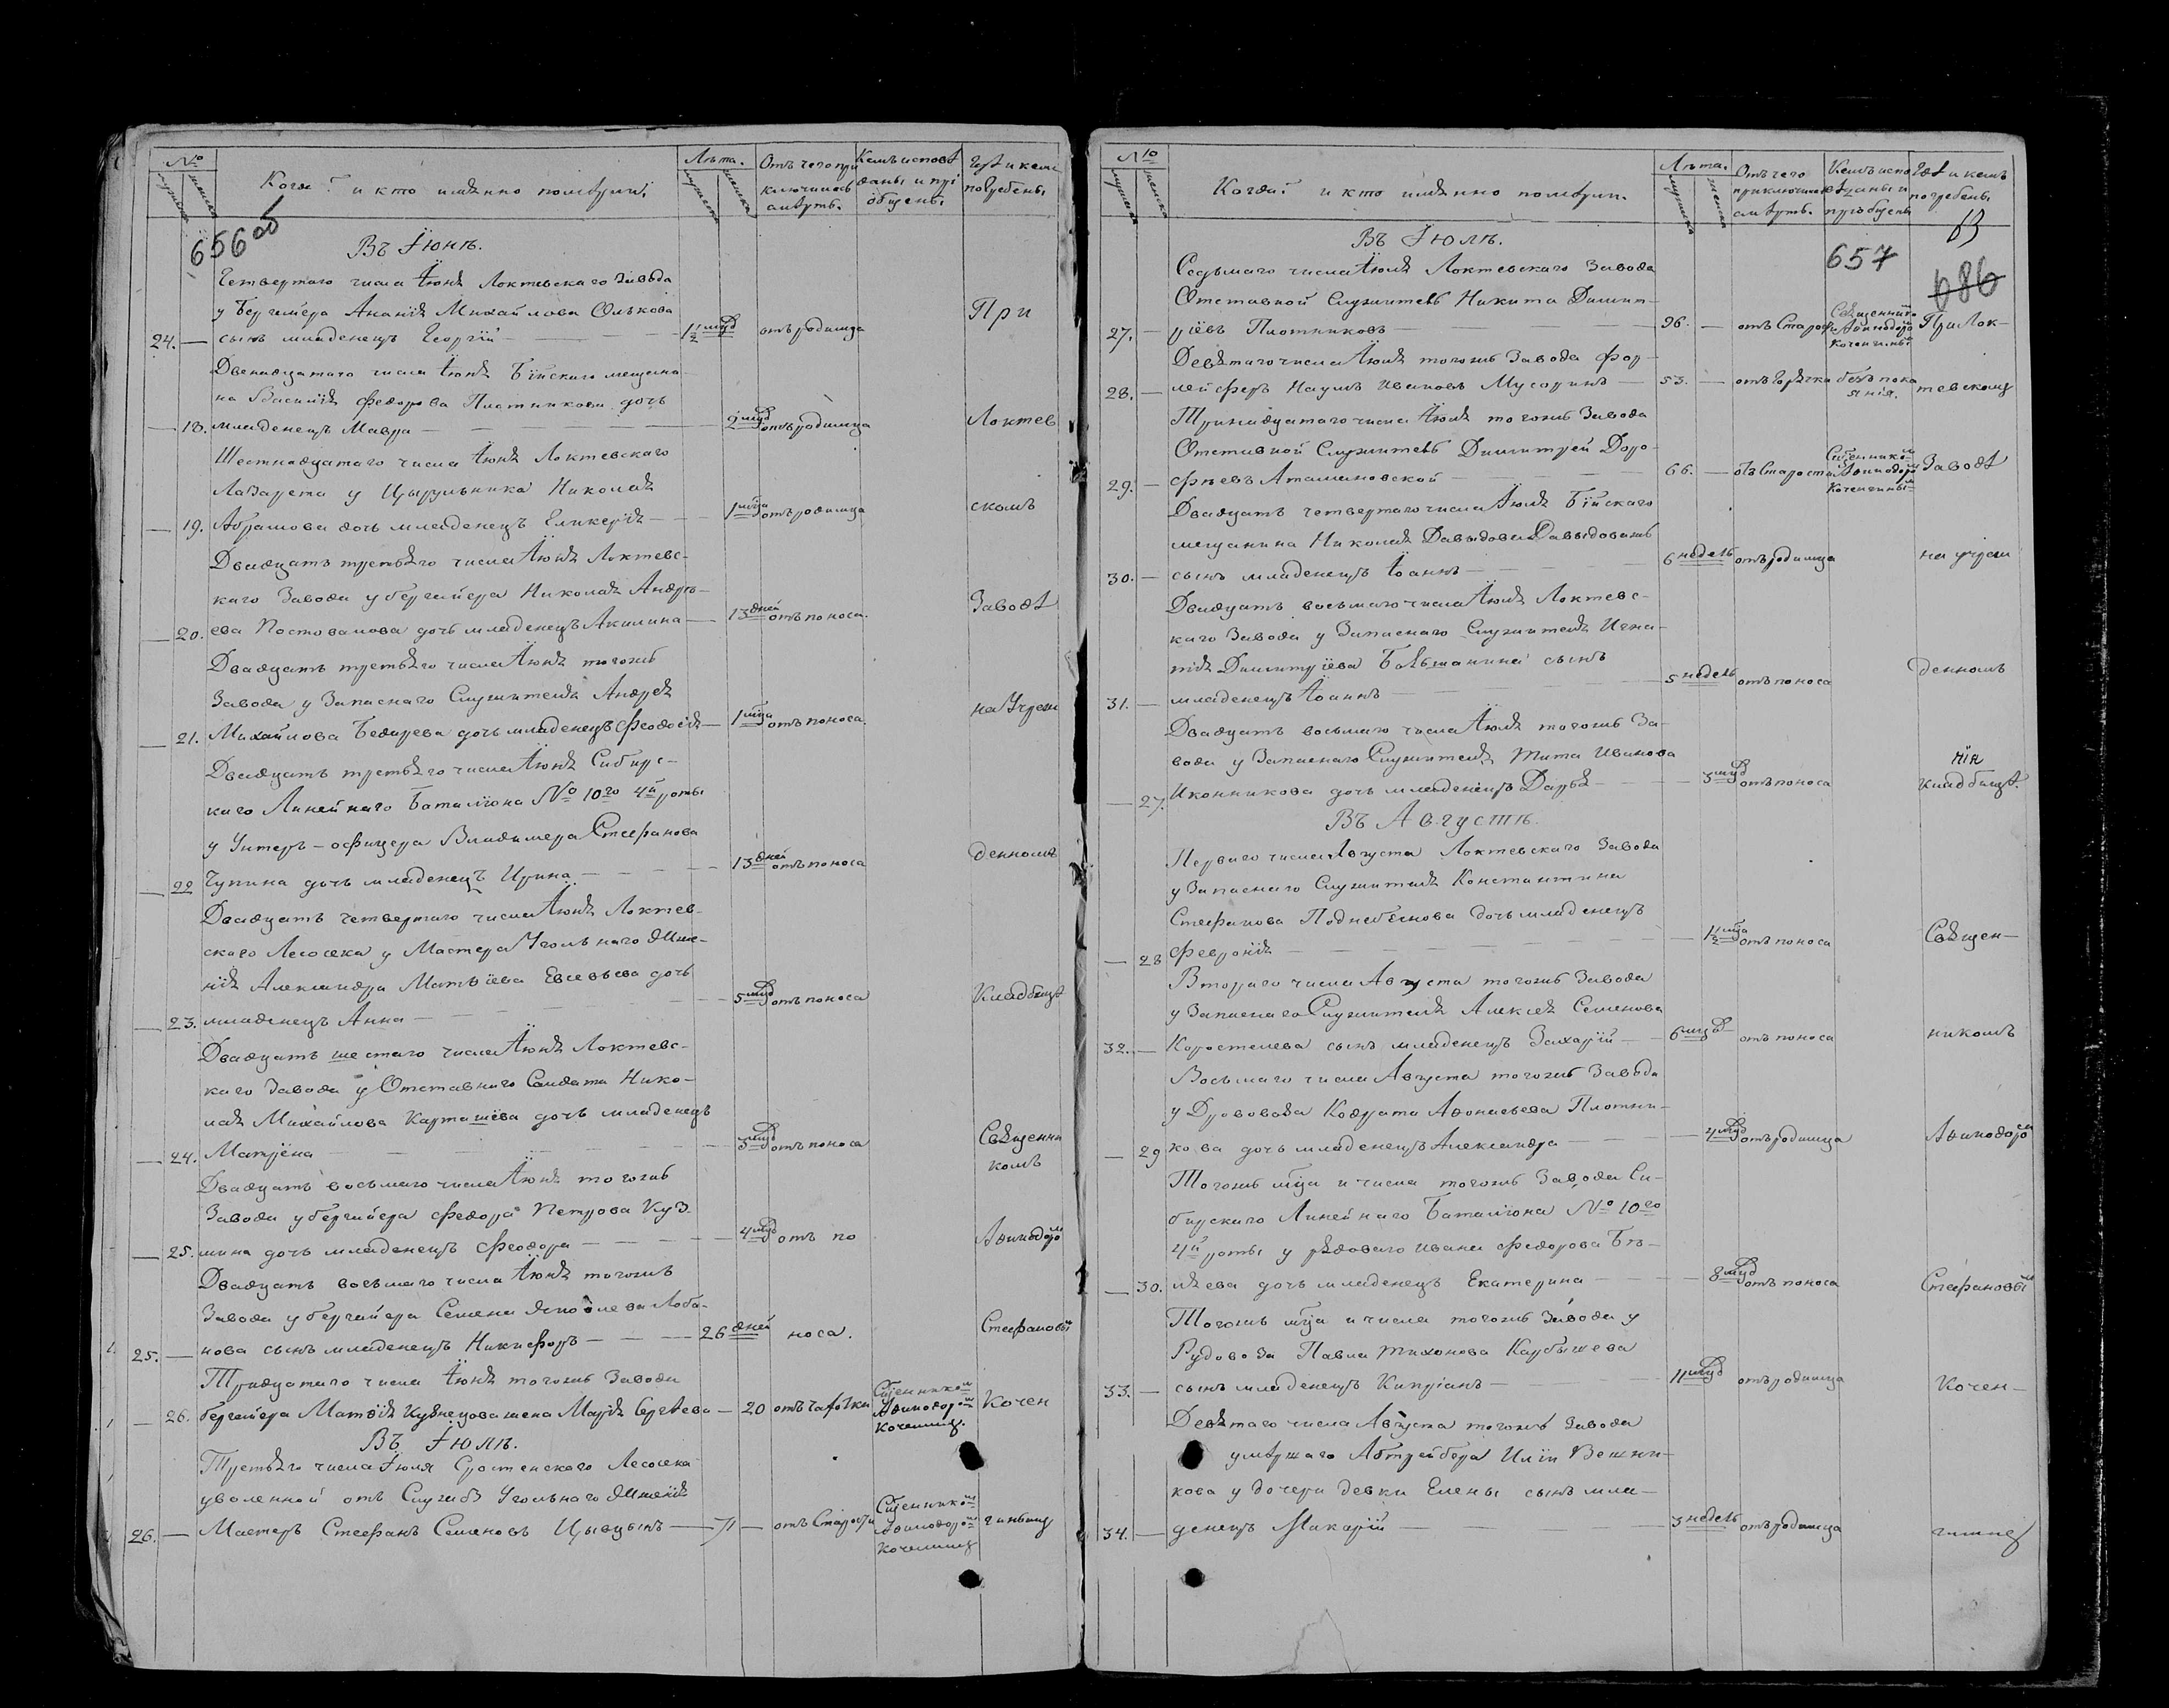 №
мужеска
женска
Когда? и кто имѣнно помѣрли.
Лѣта.
Отъ чего при
ключилась
смѣрть.
Кемъ исповѣ
даны и прі
общены
Гдѣ и кемъ
погребены
656 об
Въ Іюнѣ.
Четвертаго числа Іюня Локтевскаго Завода
у Бергейера Ананія Михайлова Олькова
24. — сынъ младенецъ Георгій — 1½ мцд отъ родимца При
Двенадцатаго числа Іюня Бійскаго мещани-
на Василія Федорова Плотникова дочь
— 18. младенецъ Мавра — 2 мцд отъ родимца Локтев
Шестнадцатаго числа Іюня Локтевскаго
Лазарета у Цырульника Николая
— 19. Абрамова дочь младенецъ Гликерія — 1 мца отъ родимца скомъ
Двадцать третьяго числа Іюня Локтевс-
каго Завода у бергейера Николая Андрѣ-
— 20. ева Постовалова дочь младенецъ Акилина — 13 дней отъ поноса. Заводѣ
Двадцать третьяго числа Іюня тогожъ
Завода у Запаснаго Служителя Андрея
— 21. Михайлова Бедарева дочь младенецъ Феодосія — 1 мца отъ поноса. на Учреж
Двадцать третьяго числа Іюня Сибирс-
каго Линейнаго Баталіона № 10го 4й роты
у Унтеръ-офицера Владимера Стефанова
— 22 Чупина дочь младенецъ Ирина — 13 дней отъ поноса денномъ
Двадцать четвертаго числа Іюня Локтев-
скаго Лесосека у Мастера Угольнаго жже-
нія Александра Матвіева Евсевьева дочь
— 23. младенецъ Анна — 5 мцд отъ поноса Кладбищѣ
Двадцать шестаго числа Іюня Локтевс-
каго Завода у Отставнаго Солдата Нико-
лая Михайлова Карташева дочь младенецъ
— 24. Матрена — 3 мцд отъ поноса Священни
комъ
Двадцать восьмаго числа Іюня тогожъ
Завода у бергейера Федора Петрова Куз-
— 25. мина дочь младенецъ Феодора — 4 мцд отъ по Авинодоро м
Двадцать восьмаго числа Іюня тогожъ
Завода у бергейера Семена Лоба-
25. — нова сынъ младенецъ Никифоръ — 26 дней носа. Стефановы м
Тридцатаго числа Іюня тогожъ Завода
— 26. бергейера Матвія Кузнецова жена Марія Сергѣева — 20 отъ чахотки Сщенникомъ Авинодоромъ Коченгин. Кочен
Въ Іюлѣ.
Третьяго числа Іюля Сростенскаго Лесосека
уволенной отъ Службы Угольнаго жженія
26. — Мастеръ Стефанъ Семеновъ Цывцынъ — 71 — отъ Старости Сщенникомъ Авинодоромъ Коченгин гинымъ
№
мужеска
женска
Когда? и кто имѣнно помѣрли.
Лѣта.
Отъ чего
приключилась
смѣрть.
Кемъ испо
вѣданы и
пріобщены
Гдѣ и кемъ
погребены
657
686
Въ Іюлѣ.
Седьмаго числа Іюля Локтевскаго Завода
Отставной Служитель Никита Димит-
27. — ріевъ Плотниковъ — 96. — отъ Старос Священником Авинодоро Коченгины При Лок-
Девятаго числа Іюля тогожъ Завода фор-
28. — лейферъ Наумъ Ивановъ Мусоринъ — 53. — отъ Горячки безъ пока янія. тевскомъ
Тринадцатаго числа Іюля тогожъ Завода
Отставной Служитель Димитрей Доро-
29. — феевъ Атамановской — 66. — отъ Староста Сщенником Авинодором Коченгины Заводѣ
Двадцать четвертаго числа Іюля Бійскаго
мещанина Николая Давыдова
30. — сынъ младенецъ Іоаннъ — 6 недель отъ родимца на учреж
Двадцать восьмаго числа Іюля Локтевс-
каго Завода у Запаснаго Служителя Игна-
тія Димитріева Большанина сынъ
31. — младенецъ Іоаннъ — 5 недель отъ поноса денномъ
Двадцать восьмаго числа Іюля тогожъ За-
вода у Запаснаго Служителя Тита Иванова
— 27. Иконникова дочь младенецъ Дарья — 3 мцд отъ поноса кладбищѣ.
Въ Августѣ.
Перваго числа Августа Локтевскаго Завода
у Запаснаго Служителя Константина
Стефанова Поднебеснова дочь младенецъ
— 28 Февронія — 1½ мца отъ поноса Священ-
Втораго числа Августа тогожъ Завода
у Запаснаго Служителя Алексея Семенова
32. — Коростелева сынъ младенецъ Захарій — 6 мцд отъ поноса никомъ
Восьмаго числа Августа тогожъ Завода
у Дрововоза Кодрата Афонасьева Плотни-
— 29 кова дочь младенецъ Александра — 4 мцд отъ родимца Авинодоро м
Тогожъ мца и числа тогожъ Завода Си-
бирскаго Линейнаго Баталіона № 10го
4й роты у рядоваго Ивана Федорова Бѣ-
— 30. ляева дочь младенецъ Екатерина — 8 мцд отъ поноса Стефановы м
Тогожъ мца и числа тогожъ Завода у
Рудовоза Павла Тихонова Карбышева
33. — сынъ младенецъ Кипріанъ — 11 мцд отъ родимца Кочен-
Девятаго числа Августа тогожъ Завода
умѣршаго Абтрейбера Иліи Вежни-
кова у дочери девки Елены сынъ мла-
34. — денецъ Макарій — 3 недель отъ родимца